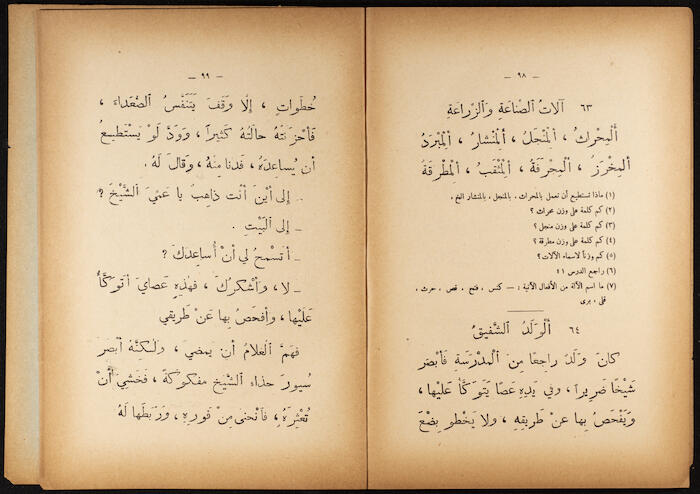 — ٩٨ —
٦٣ آلاتُ الصِّنَاعَةِ وَالزِّرَاعَةِ
أَلْمِحْرَاثُ ، أَلْمِنْجَلُ ، أَلْمِنْشَارُ ، أَلْمِبْرَدُ
أَلْمِخْرَزُ ، أَلْمِجْرَفَةُ ، أَلْمِثْقَبُ ، أَلْمِطْرَقَةُ
(١) ماذا تستطيع أن تعمل بالمحراث . بالمنجل . بالمنشار الخ .
(٢) كم كلمة على وزن محراث ؟
(٣) كم كلمة على وزن منجل ؟
(٤) كم كلمة على وزن مطرقة ؟
(٥) كم وزناً لاسماء الآلات؟
(٦) راجع الدرس
(٧) ما اسم الآلة من الأفعال الآتية : — كنس ، فتح ، قص ، حرث ،
قلى ، برى
٦٤ أَلْوَلَدُ الشَّفِيقُ
كانَ وَلَدٌ راجِعًا مِنَ الْمَدْرَسَةِ فَأَبْصَرَ
شَيْخًا ضَرِيرًا ، وفِي يَدِهِ عَصًا يَتَوَكَّأُ عَلَيْهَا ،
وَيَفْحَصُ بِها عَنْ طَرِيقِهِ ، ولا يَخْطُو بِضْعَ
— ٩٩ —
خُطُواتٍ ، إلَّا وَقَفَ يَتَنَفَّسُ الصُّعَداءَ ،
فَأَحْزَنَتْهُ حالَتُهُ كَثِيرًا ، وَوَدَّ لَوْ يَسْتَطِيعُ
أن يُساعِدَهُ ، فَدَنا مِنْهُ ، وَقالَ لَهُ .
ـ إلى أَيْنَ أَنْتَ ذاهِبٌ يا عَمِّيَ الشَّيْخَ ؟
ـ إلى الْبَيْتِ .
ـ أَتَسْمَحُ لي أَنْ أُساعِدَكَ ؟
ـ لا ، وَأَشْكُرُكَ ، فَهذِهِ عَصايَ أَتَوَكَّأُ
عَلَيْها ، وأَفْحَصُ بِها عَنْ طَرِيقي
فَهَمَّ الْغُلامُ أن يَمْضِيَ ، وَلَكِنَّهُ أَبْصَرَ
سُيُورَ حِذاءِ الشَّيْخِ مَفْكُوكَةً ، فَخَشِيَ أَنْ
تُعْثِرَهُ ، فَانْحَنى مِنْ فَوْرِهِ ، وَرَبَطَها لَهُ